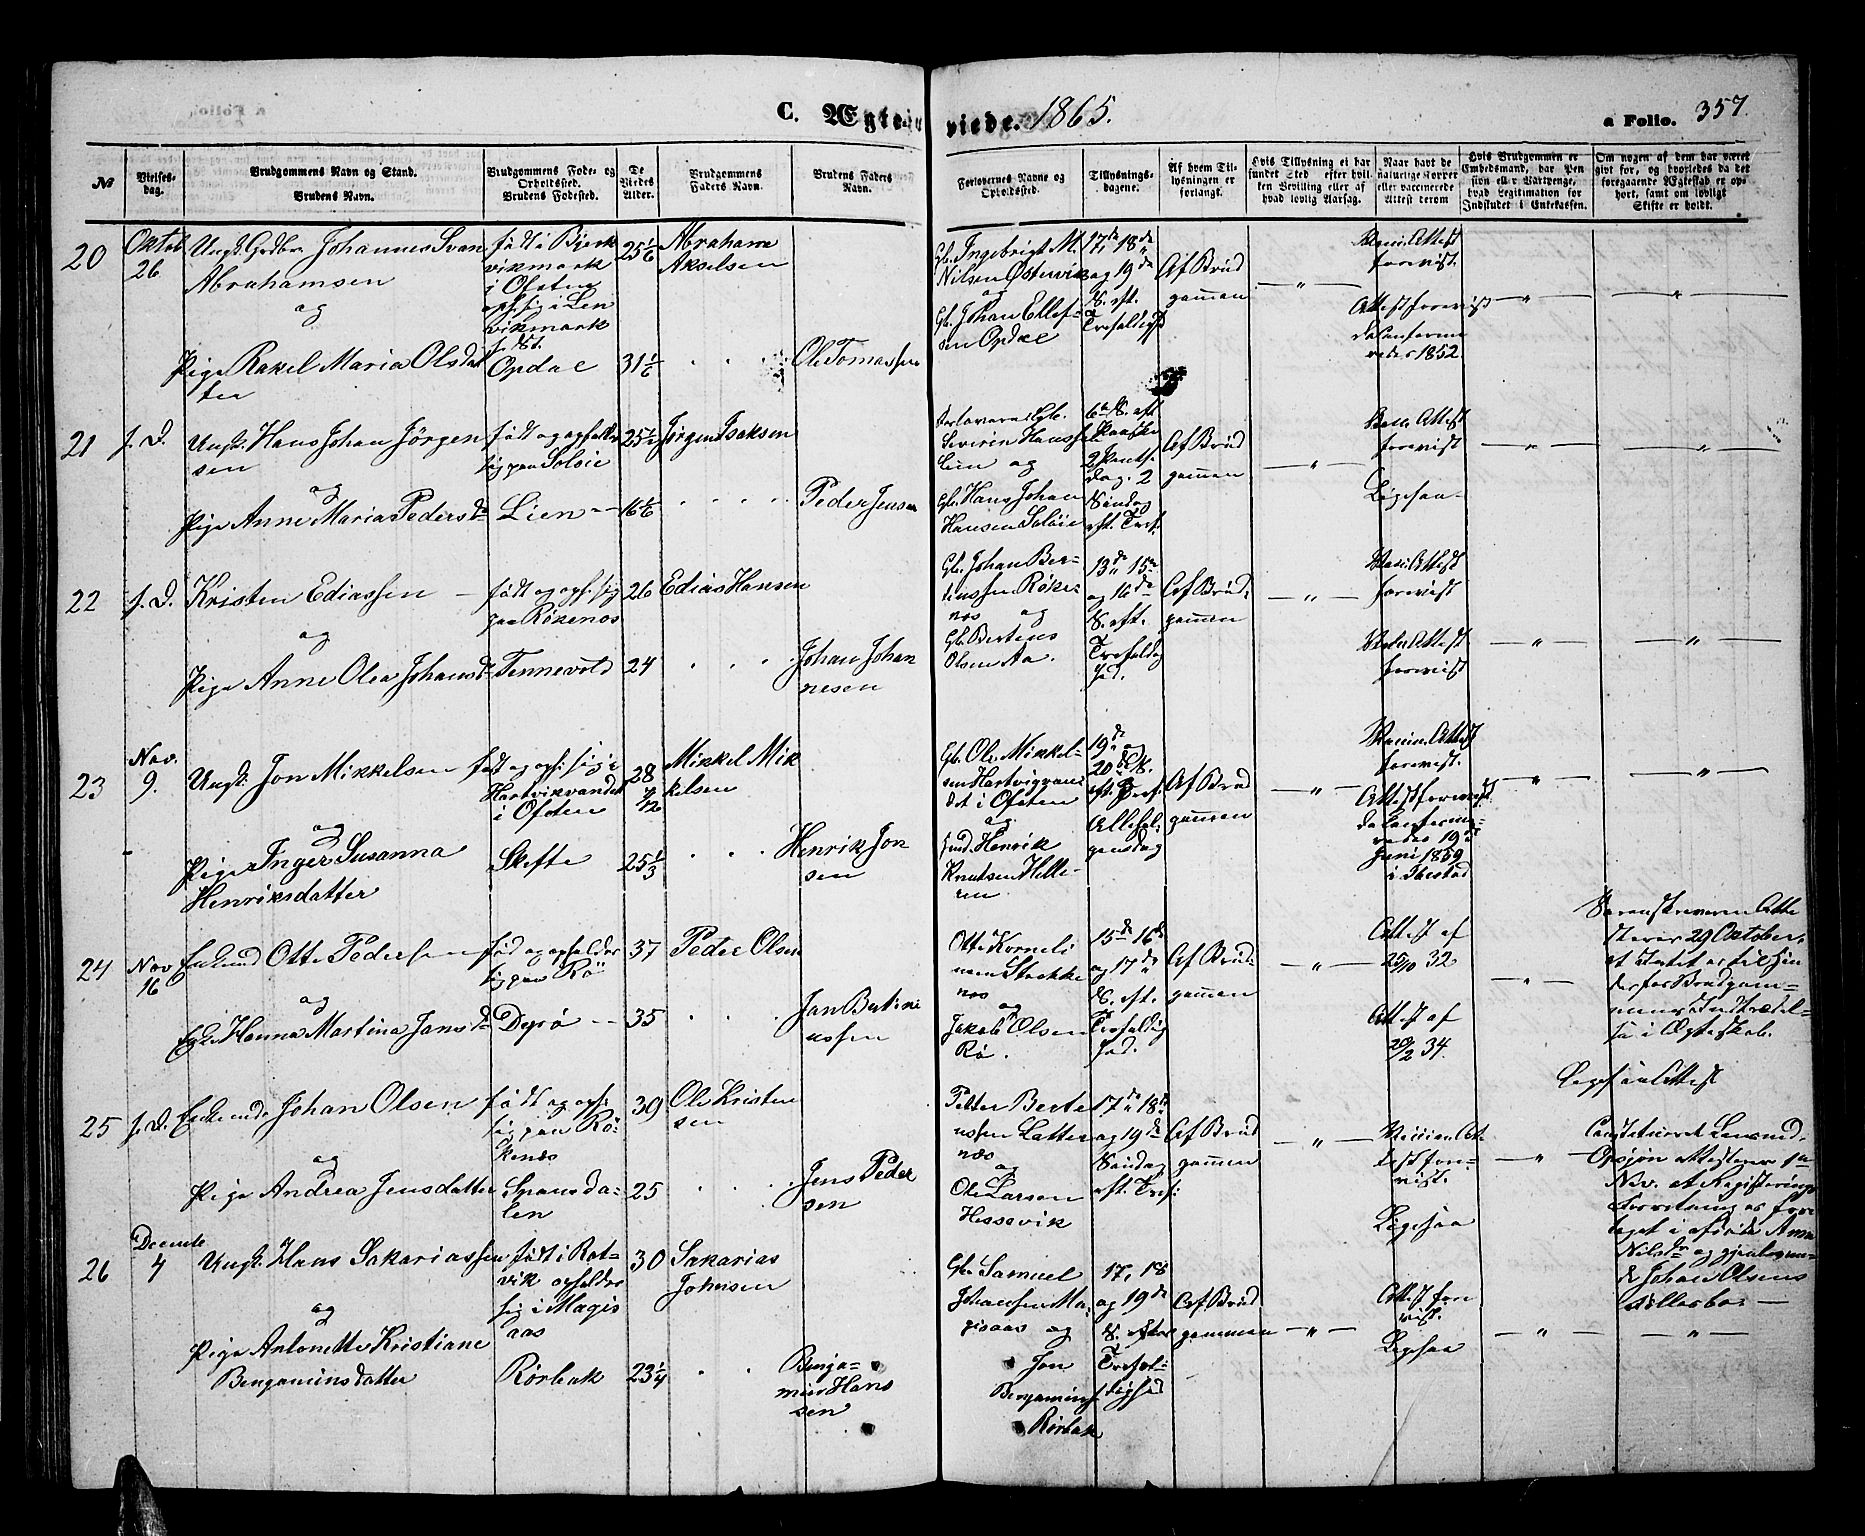 C. Ægteviede. 1865.
a Folio. 357.
No
Vielses-
dag.
Brudgommens Navn og Stand.
Brudens Navn.
Brudgommens Føde- og
Opholdssted.
Brudens Fødested.
De
Viedes
Alder.
Brudgommens
Faders Navn.
Brudens Faders
Navn.
Forlovernes Navne og
Opholdssted.
Tillysnings-
dagene.
Af hvem Til-
lysningen er
forlangt.
Hvis Tillysning ei har
fundet Sted efter hvil-
ken Bevilling eller af
hvad lovlig Aarsag.
Naar havt de
naturlige Kopper
eller vaccinerede
Attest derom
Hvis Brudgommen er
Embedsmand, har Pen
sion eller Vartpenge,
hvad Legitimation for
Indskudet i Enkekassen.
Om nogen af dem har været
givt før, og hvorledes da det
foregaaende Ægteskab er op-
hørt, samt om lovligt
Skifte er holdt.
20
Oktob
26
Ungk. Grdbr. Johannes Svan
Abrahamsen
og
Pige Rakel Maria Olsdat
ter
født i Bjerk
vikmark
i Ofoten
oph. sig i Len
vikmark
f. St.
Opdal
25 1/6
31 1/6
Abraham
Akselsen
Ole Tomassen
Gb. Ingebrigt M.
Nilsen Østervik
og
Gb. Johan Ellef-
sen Opdal
17de 18de
og 19de
S. eft.
Trefoldighd
Af Brud
gommen
"
Vacc. Attest
forevist.
Attest forevist
da konfirme
redes 1852
"
"
21
s. D.
Ungk. Hans Johan Jørgen
sen
og
Pige Anne Maria Pedersd
født og opholder
sig paa Soløie
Lien
25 1/2
16 1/6
Jørgen Isaksen
Peder Jensen
Forloverne Gb.
Severin Hanssen
Lien og
Gb. Hans Johan
Hansen Soløie
6te S. eft
Paaske
2 Pintse
dag. 2
Søndag
eft. Tref.
Af Brud
gommen
"
Vacc. Attest
forevist
Ligesaa
"
"
22
s. D.
Kristen Ediassen
og
Pige Anne Olea Johansd
født og oph. sig
paa Røkenes
Tennevold
26
24
Edias Hansen
Johan Johan
nesen
Gb. Johan Ber-
tinssen Røke-
nes og
Gb. Bertens
Olsen Aa.
13de 15de
og 16de
S. eft.
Trefoldig
hd.
Af Brud-
gommen
"
Vacc. Attest
forevist
Vacc. Attest
forevist
"
"
23
Nov.
9.
Ungk. Jon Mikkelsen
og
Pige Inger Susanna
Henriksdatter
født og oph. sig i
Hartvikvandet
i Ofoten
Skefte
28 7/12
25 1/3
Mikkel Mik
kelsen
Henrik Jon
sen
Gb. Ole Mikkel-
sen Hartvigvan
det i Ofoten
og
Henrik
Knutsen Helle-
ren
19de og
20de S.
eft. Tref.
Allehel-
gensdag
Af Brud
gommen
"
Vaccine Attest
forevist.
Attest forevist
da konfirme-
redes 19de
Juni 1859
i Ibestad
"
"
24
Nov
16
Enkemd Otte Pedersen
og
Hanna Martina Jansd
født og opholder
sig paa Rö
Dyrö
37
35
Peder Olsen
Jan Bertine
ussen
Otte Korneli
ussen Stokke
nes og
Jakob Olsen
Rö.
15de 16de
og 17de
S. eft.
Trefoldig
hed.
Af Brud-
gommen
"
Attest af
25/10 32
Attest af
20/2 34.
"
Sorenskriveren Atte
sterer 29 Oktober,
at Intet er til Hin
der for Brudgom-
mens Indtrædel-
se i Ægteskab.
Ligesaa Attest
25
s. D.
Enkemd Johan Olsen
og
Pige Andrea Jensdatter
født og oph.
sig paa Rö-
kenes
Spansda-
len
39
25
Ole Kristen
sen
Jens Peder
sen
Petter Berte
ussen Latter
næs
og
Ole Larsen
Hessevik
17de 18de
og 19de
Søndag
eft. Tref:
Af Brud
gommen
"
Vaccine At-
test fore-
vist.
Ligesaa
"
Constitueret Lensmd.
Opsjøn attesterer 1te
Nov. at Registerings
Forretning er fore
taget i afdøde Anne
Nilsdr og gjenlevn-
de Johan Olsens
Fællesbo.
26
Decembr
4
Ungk. Hans Sakariassen
og
Pige Antonette Kristiane
Benjaminsdatter
født i Rot-
vik opholder
sig i Magis
aas
Rørbak
30
23 1/4
Sakarias
Johnsen
Benja-
min Hans
sen
Gb. Samuel
Johansen Ma-
gisaas og
Jon
Benjamins.
Rørbak
17, 18
og 19de
S. efter
Trefol-
dighed
Af Brud
gommen
"
Attest fore
vist.
Ligesaa
"
"